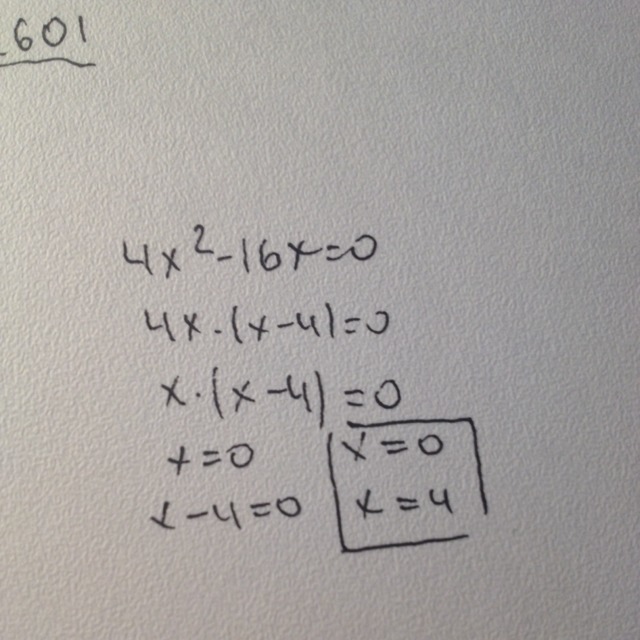 601
4x²-16x=0
4x·(x-4)=0
x·(x-4)=0
x=0 x=0
x-4=0 x=4